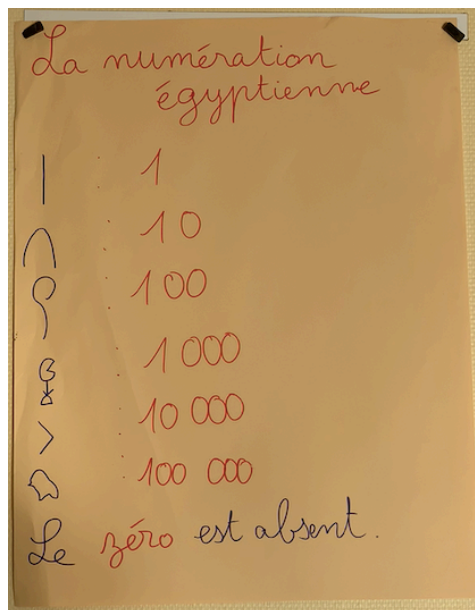 La numération
égyptienne
| : 1
∩ : 10
: 100
: 1 000
> : 10 000
: 100 000
Le zéro est absent.